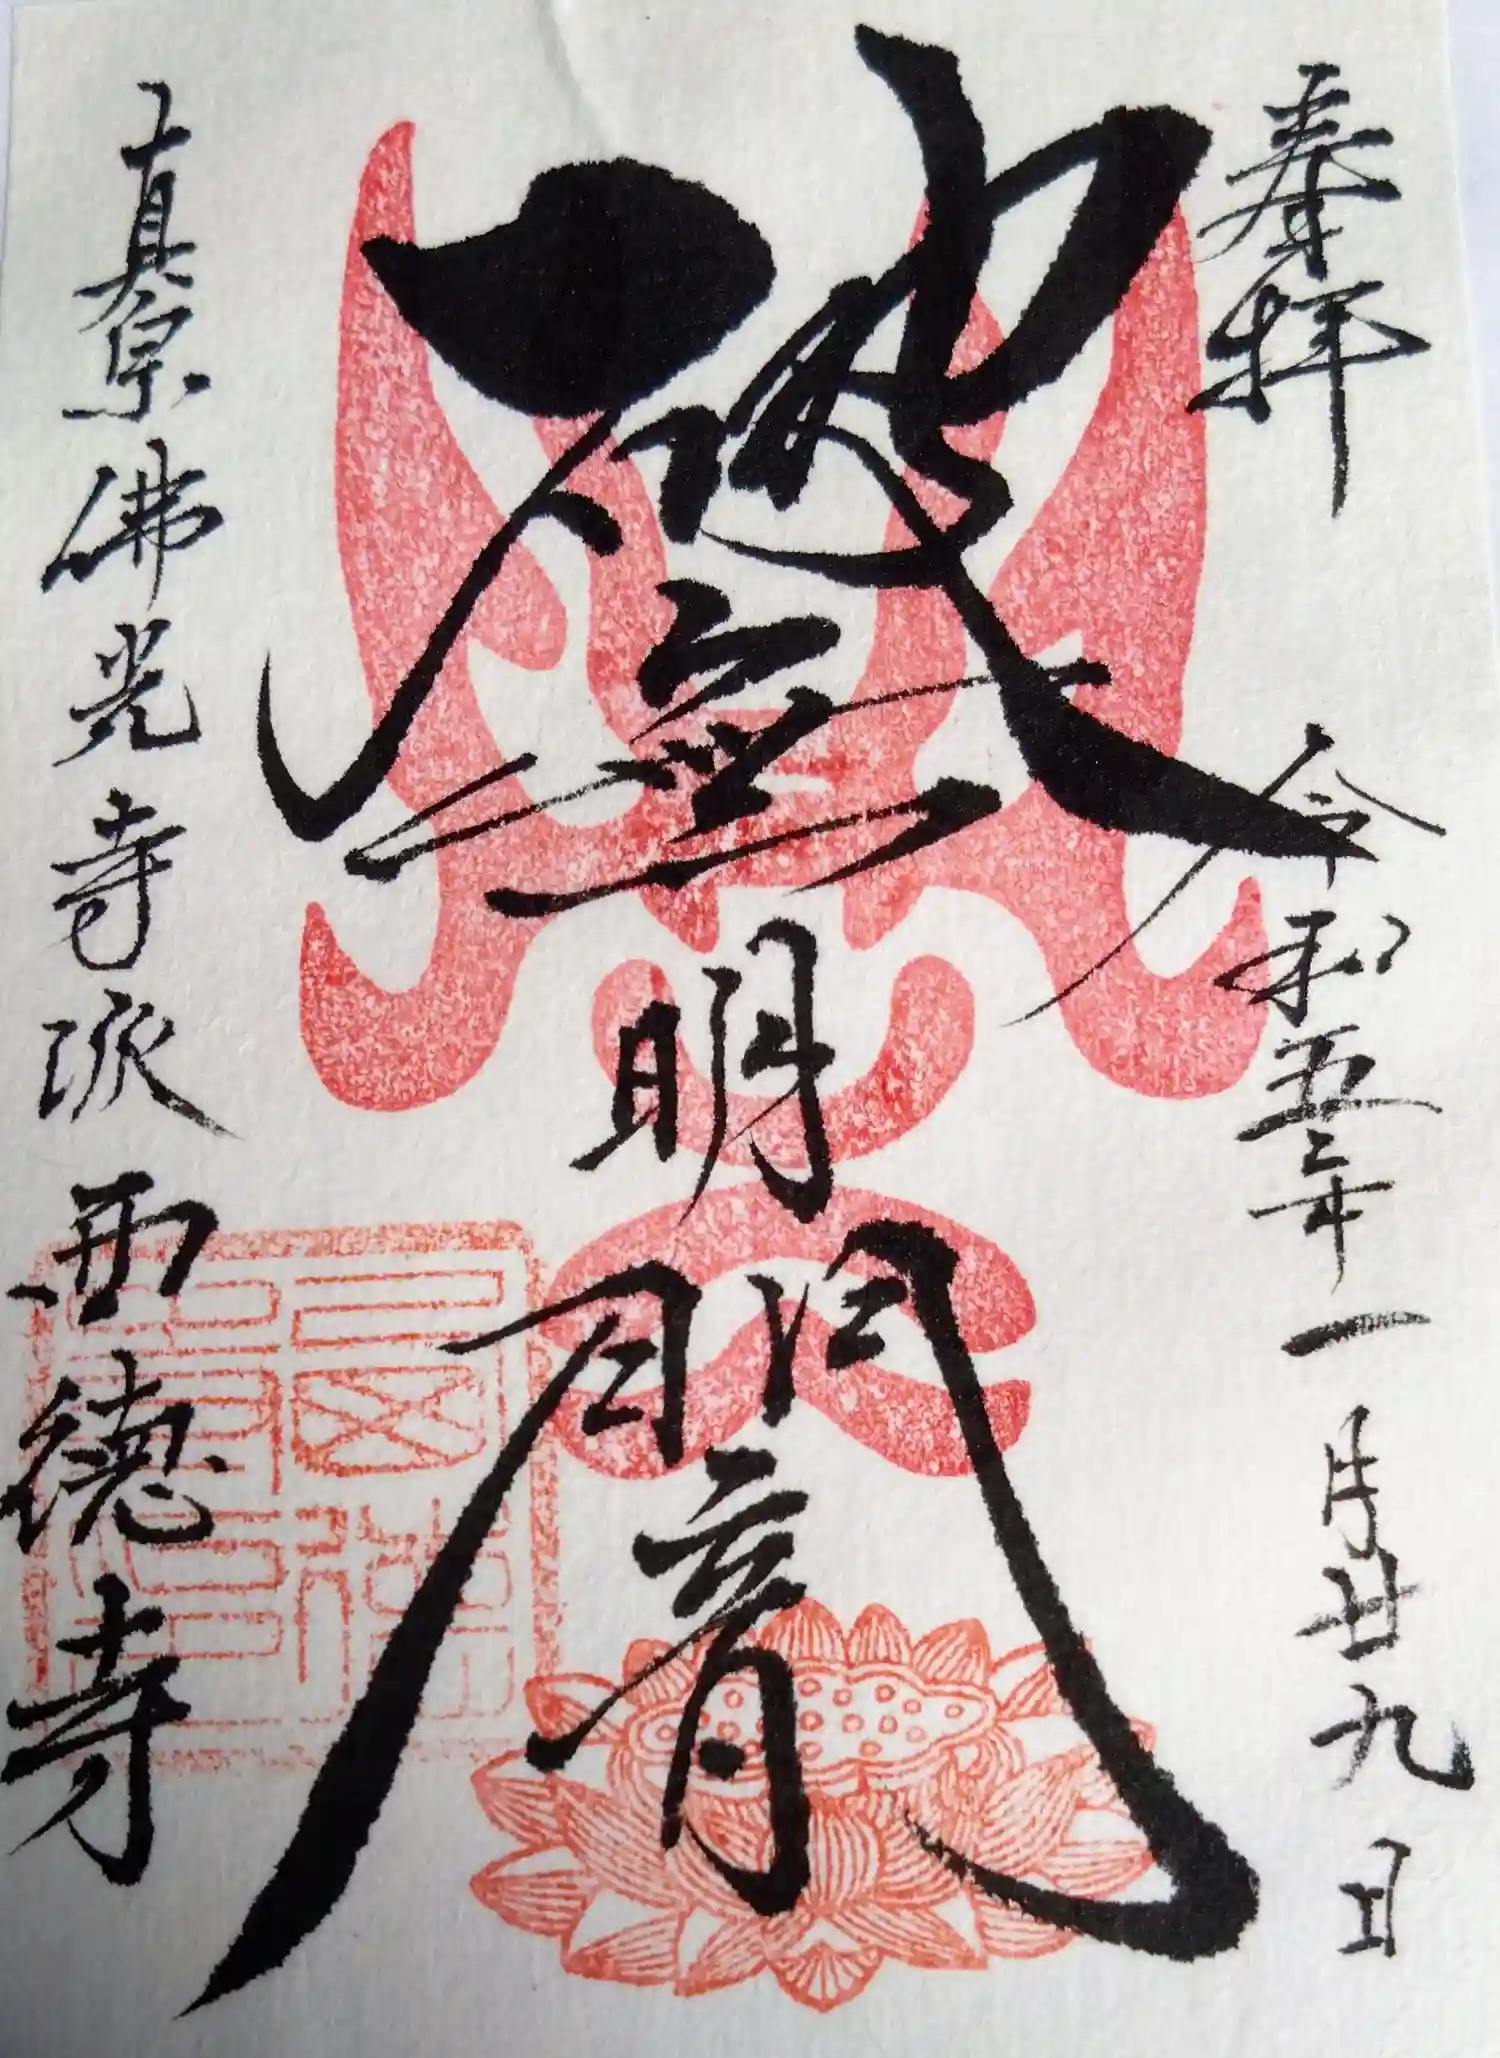 奉拝
令和五年一月廿九日
破無明闇
真宗佛光寺派
西德寺